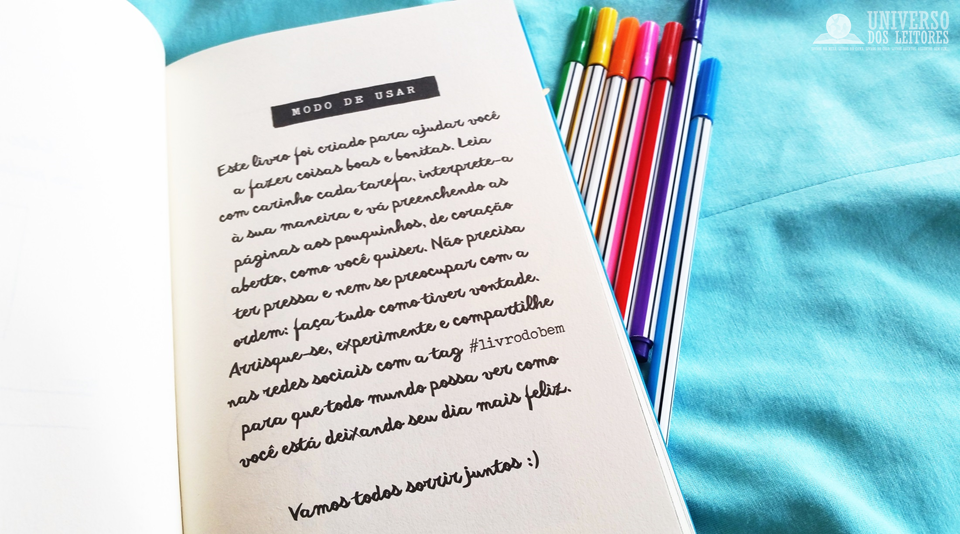 MODO DE USAR
Este livro foi criado para ajudar você
a fazer coisas boas e bonitas. Leia
com carinho cada tarefa, interprete-a
à sua maneira e vá preenchendo as
páginas aos pouquinhos, de coração
aberto, como você quiser. Não precisa
ter pressa e nem se preocupar com a
ordem: faça tudo como tiver vontade.
Arrisque-se, experimente e compartilhe
nas redes sociais com a tag #livrodobem
para que todo mundo possa ver como
você está deixando seu dia mais feliz.
Vamos todos sorrir juntos :)
UNIVERSO
DOS LEITORES